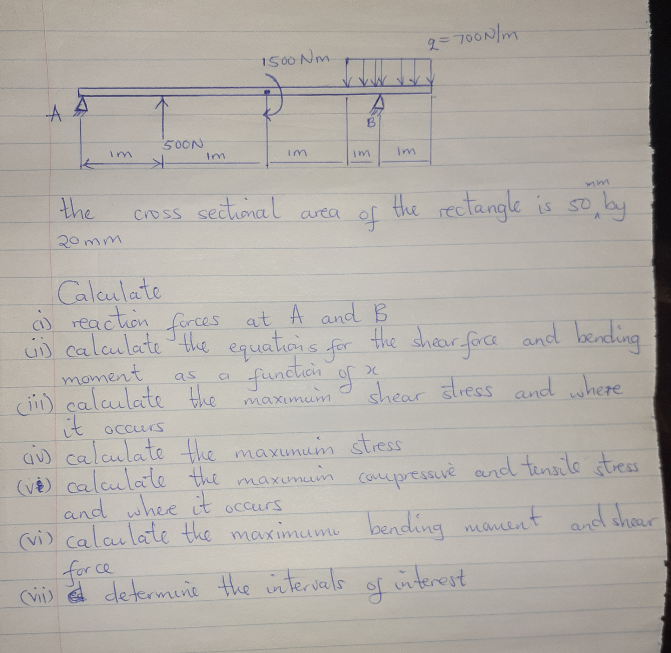 q = 700N/m
1500 Nm
A
B
500N
1m 1m 1m 1m 1m
the cross sectional area of the rectangle is 50 mm by
20mm
Calculate
(i) reaction forces at A and B
(ii) calculate the equations for the shear force and bending
moment as a function of x
(iii) calculate the maximum shear stress and where
it occurs
(iv) calculate the maximum stress
(v) calculate the maximum compressive and tensile stress
and where it occurs
(vi) calculate the maximum bending moment and shear
force
(vii) determine the intervals of interest